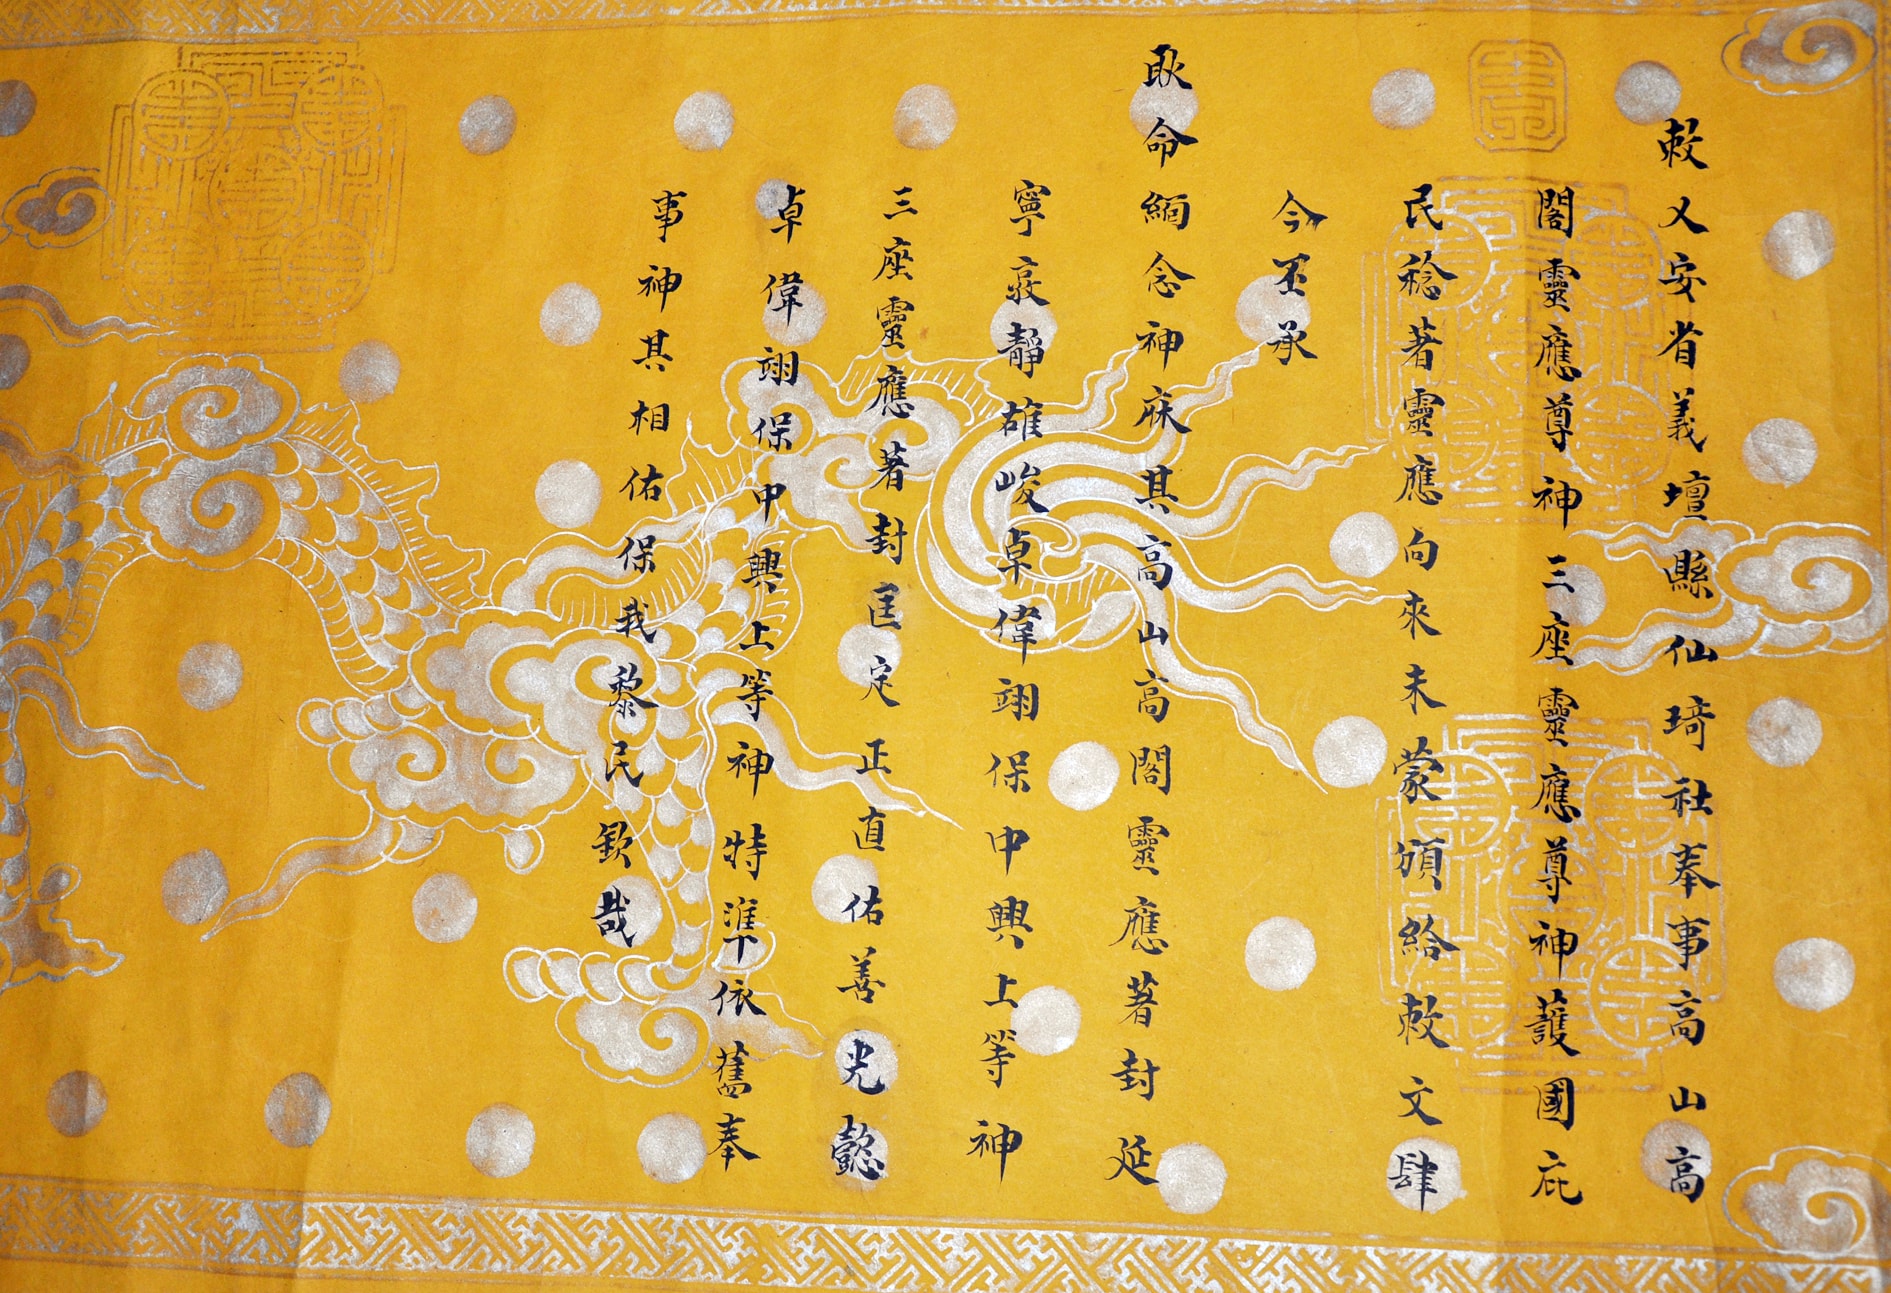 敕乂安省義壇縣仙琦社奉事高山高
閣靈應尊神三座靈應尊神護國庇
民稔著靈應向來未蒙頒給敕文肆
今丕承
耿命緬念神庥其高山高閣靈應著封延
寧衷靜雄峻卓偉翊保中興上等神
三座靈應著封匡定正直佑善光懿
卓偉翊保中興上等神特準依舊奉
事神其相佑保我黎民欽哉